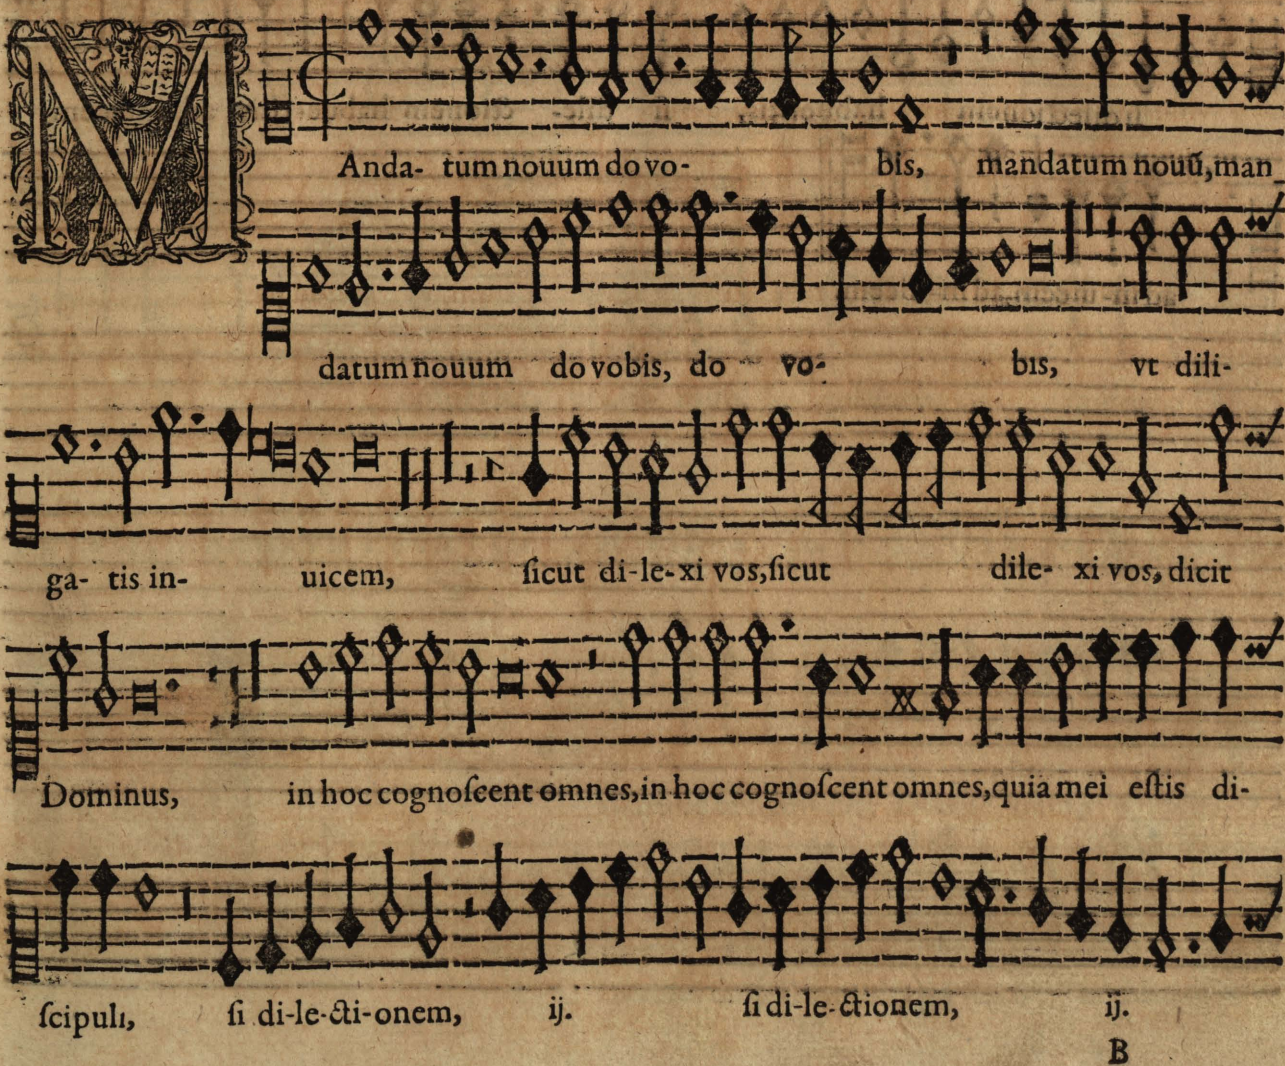 MAnda- tum nouum do vo- bis, mandatum nouū, man
datum nouum do vobis, do vo- bis, vt dili-
ga- tis in- uicem, ſicut di-le-xi vos, ſicut dile- xi vos, dicit
Dominus, in hoc cognoſcent omnes, in hoc cognoſcent omnes, quia mei eſtis di-
ſcipuli, ſi di-le-cti-onem, ij. ſi di-le-ctionem, ij.
B